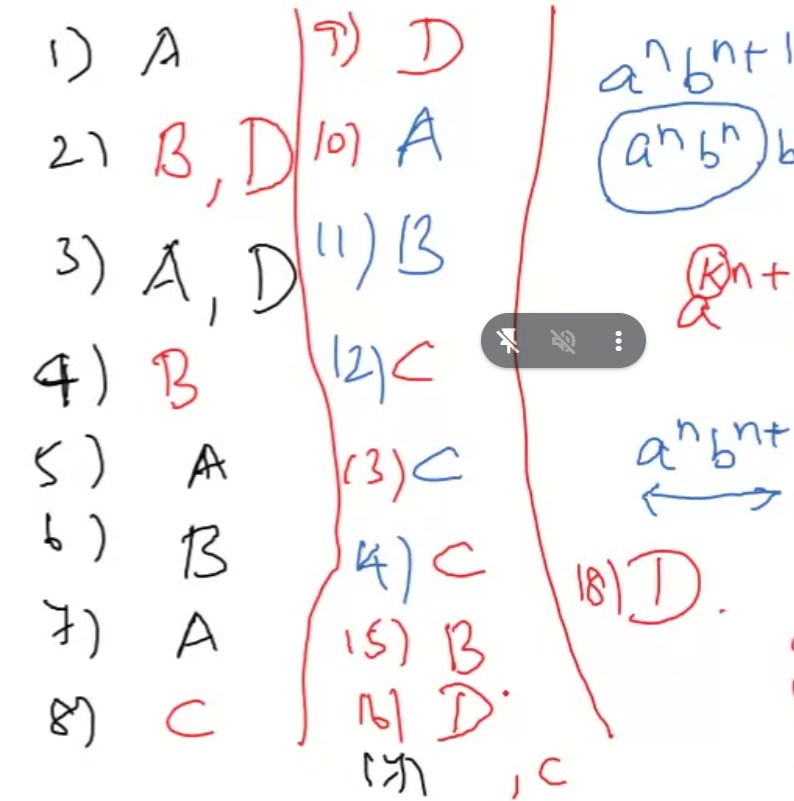 1) A
2) B, D
3) A, D
4) B
5) A
6) B
7) A
8) C
9) D
10) A
11) B
12) C
13) C
14) C
15) B
16) D
17) , C
aⁿbⁿ⁺¹
aⁿbⁿ b
kn+
a
aⁿbⁿ⁺
18) D.